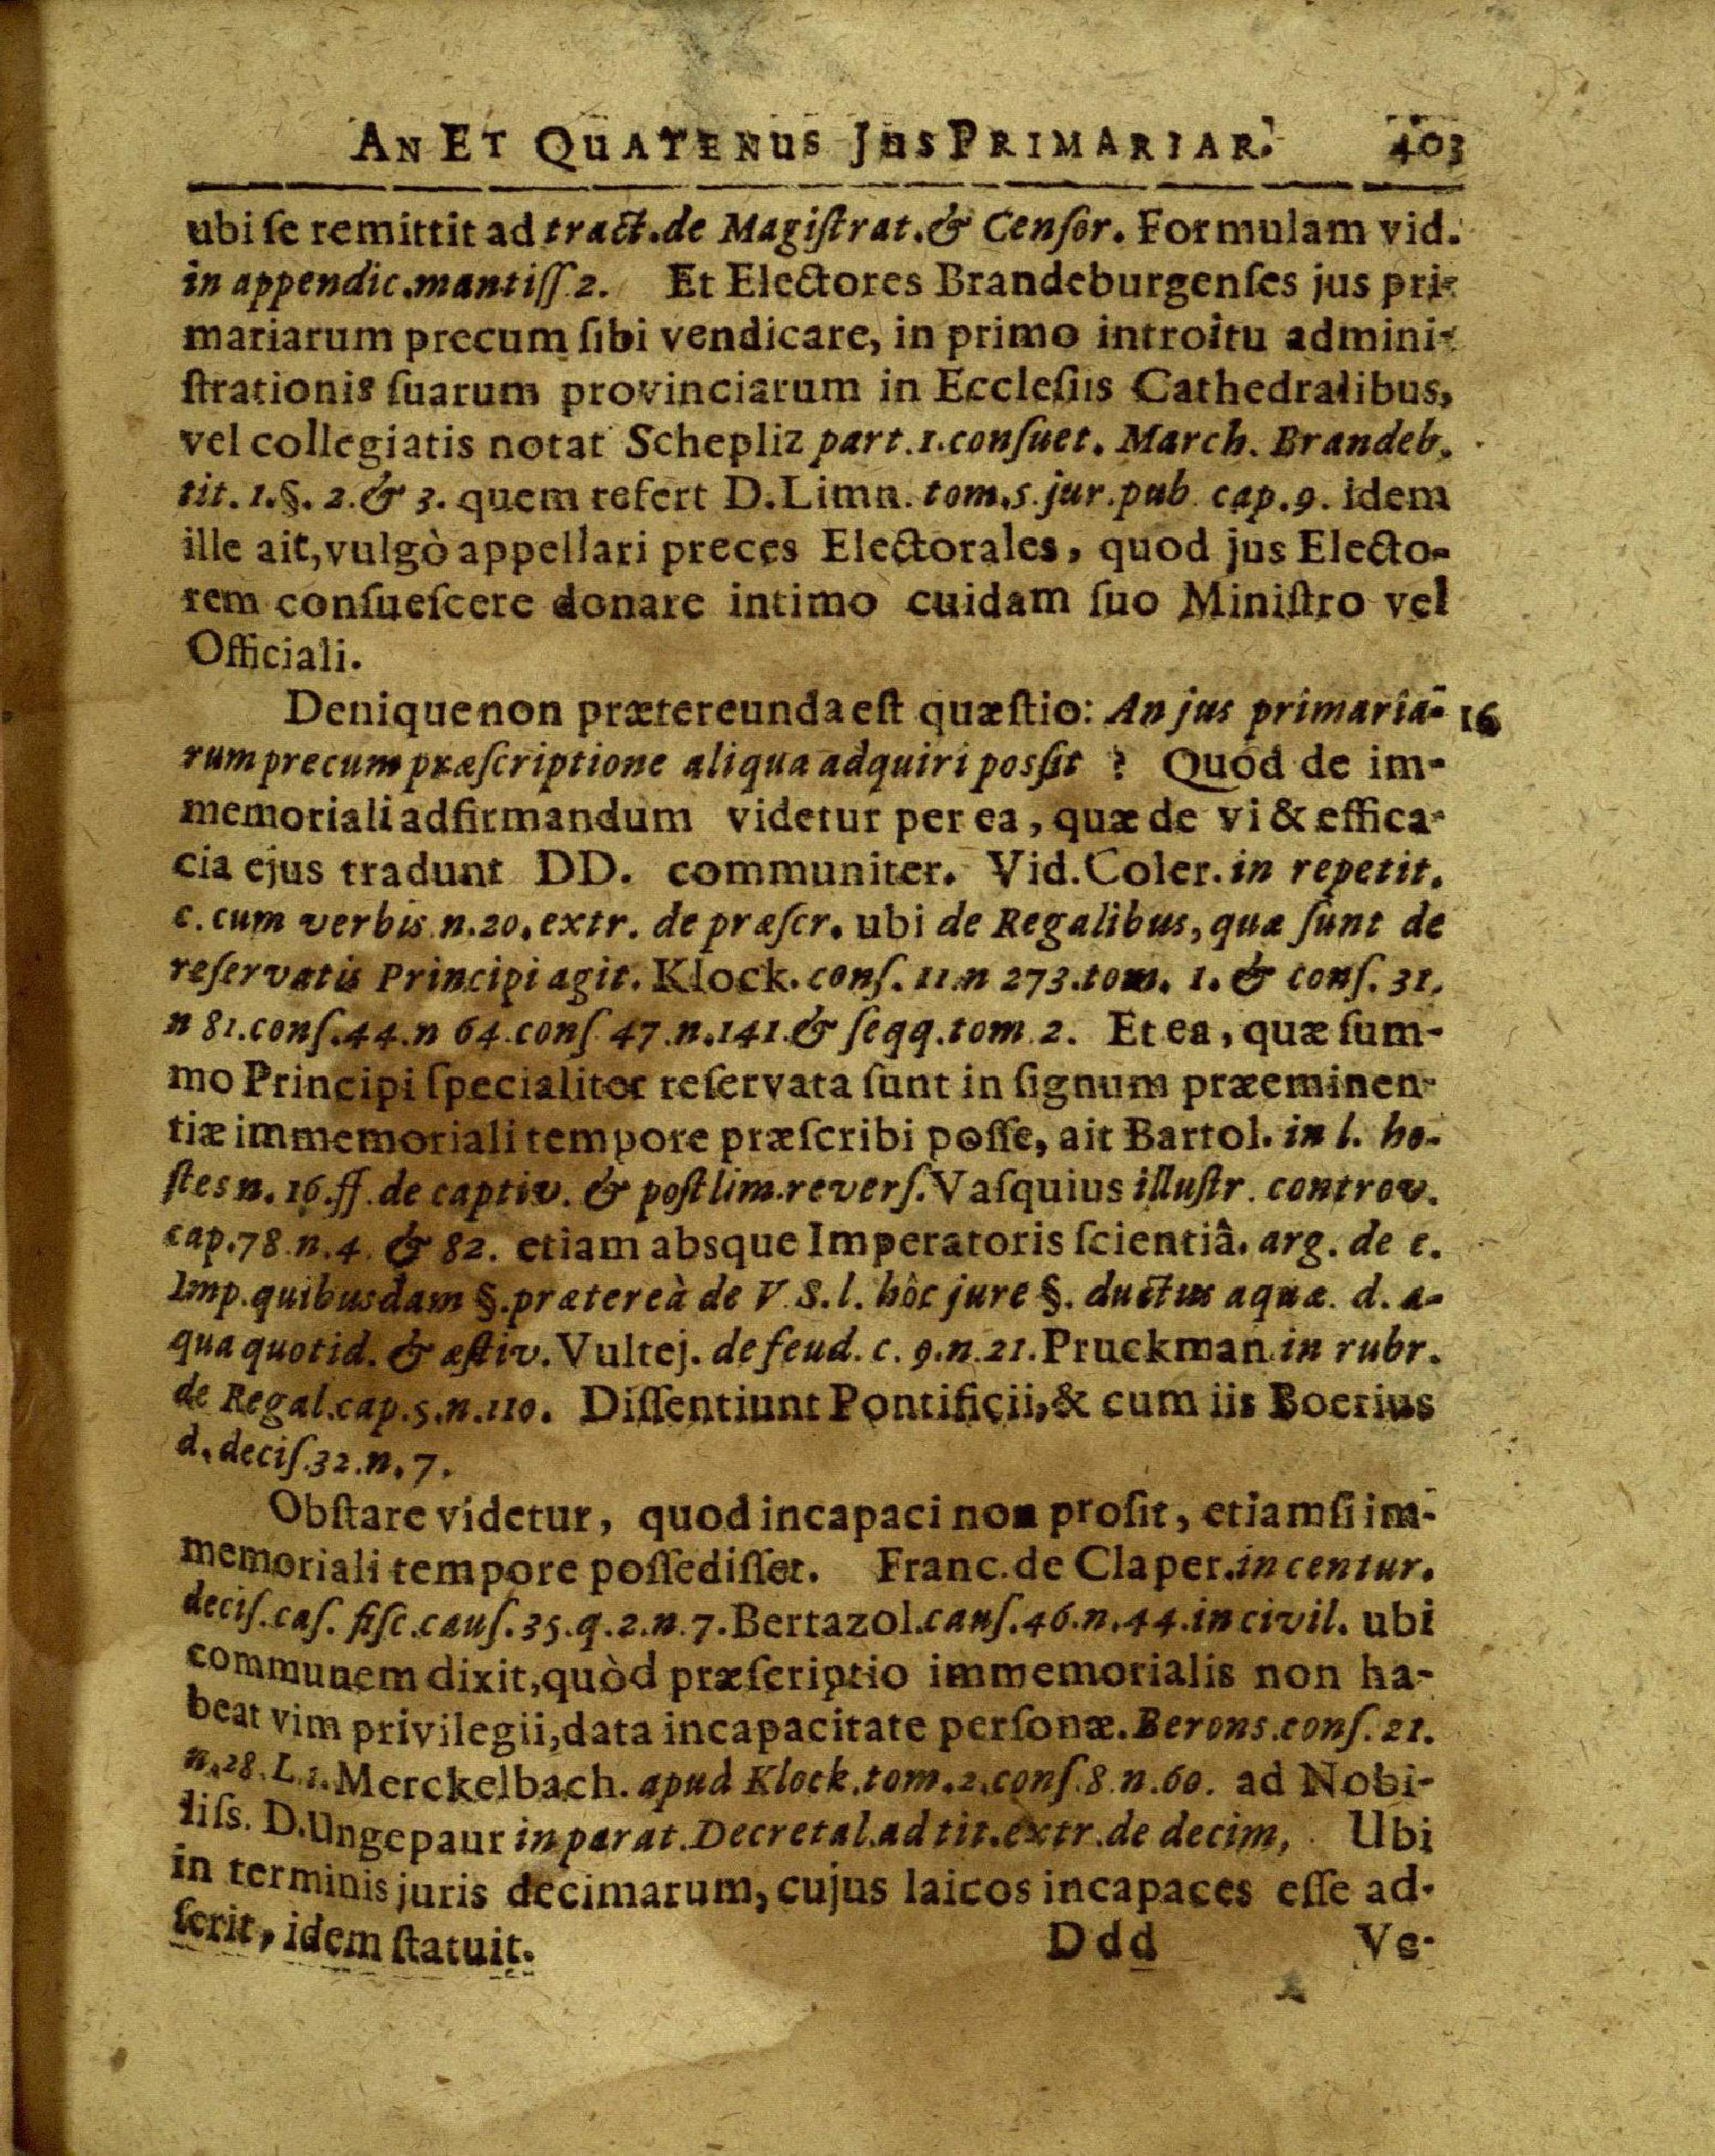 AN ET QUATENUS JUS PRIMARIAR. 403
ubi se remittit ad tract. de Magistrat. & Censor. Formulam vid.
in appendic. mantiss. 2. Et Electores Brandeburgenses jus pri-
mariarum precum sibi vendicare, in primo introitu admini-
strationis suarum provinciarum in Ecclesiis Cathedralibus,
vel collegiatis notat Schepliz part. 1. consuet. March. Brandeb.
tit. 1. §. 2. & 3. quem refert D. Limn. tom. 5. jur. pub. cap. 9. idem
ille ait, vulgò appellari preces Electorales, quod jus Electo-
rem consuescere donare intimo cuidam suo Ministro vel
Officiali.
Denique non prætereunda est quæstio: An jus primaria- 16
rum precum præscriptione aliqua adquiri possit? Quod de im-
memoriali adfirmandum videtur per ea, quæ de vi & effica-
cia ejus tradunt DD. communiter. Vid. Coler. in repetit.
c. cum verbis n. 20. extr. de præscr. ubi de Regalibus, quæ sunt de
reservatis Principi agit. Klock. cons. 11. n 273. tom. 1. & cons. 31.
n 81. cons. 44. n 64. cons. 47. n. 141. & seqq. tom. 2. Et ea, quæ sum-
mo Principi specialiter reservata sunt in signum præeminen-
tiæ immemoriali tempore præscribi posse, ait Bartol. in l. ho-
stes n. 16. ff. de captiv. & postlim. revers. Vasquius illustr. controv.
cap. 78. n. 4. & 82. etiam absque Imperatoris scientiâ. arg. de e.
Imp. quibusdam §. prætereà de V. S. l. hôc jure §. ductus aquæ. d. a-
qua quotid. & æstiv. Vultej. de feud. c. 9. n. 21. Pruckman in rubr.
de Regal. cap. 5. n. 110. Dissentiunt Pontificii, & cum iis Boerius
d. decis. 32. n. 7.
Obstare videtur, quod incapaci non prosit, etiamsi im-
memoriali tempore possedisset. Franc. de Claper. in centur.
decis. cas. fisc. caus. 35. q. 2. n. 7. Bertazol. caus. 46. n. 44. in civil. ubi
communem dixit, quòd præscriptio immemorialis non ha-
beat vim privilegii, data incapacitate personæ. Berons. cons. 21.
n. 28. L. 1. Merckelbach. apud Klock. tom. 2. cons. 8. n. 60. ad Nobi-
liss. D. Ungepaur in parat. Decretal. ad tit. extr. de decim, Ubi
in terminis juris decimarum, cujus laicos incapaces esse ad-
serit, idem statuit. Ddd Ve-